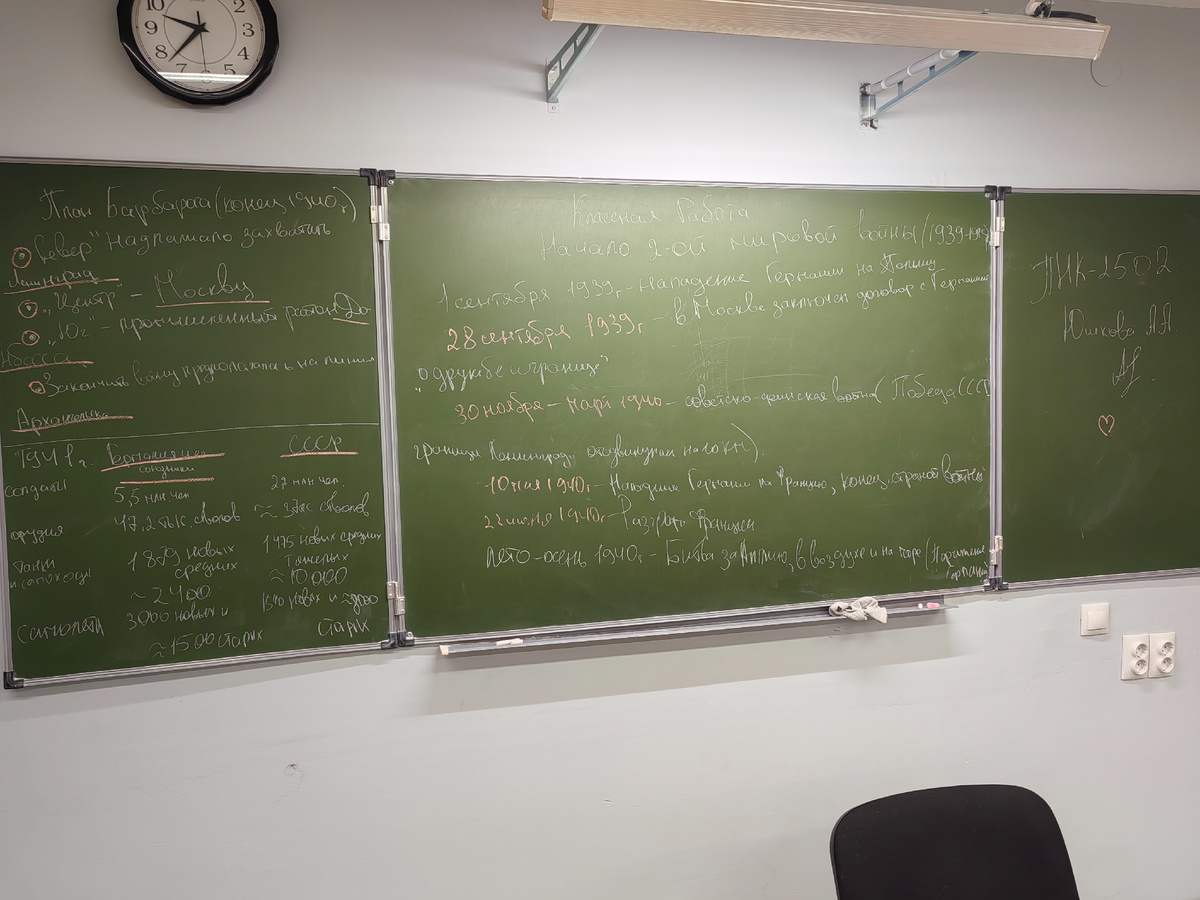 10
2
9
3
8
4
7
6
5
План Барбаросса (конец 1940 г)
"Север" надлежало захватить
Ленинград
"Центр" - Москву
"Юг" - промышленный район До
нбасса
Закончить войну на линии
Архангельска
1941 г. Германия СССР
союзники
солдаты 5,5 млн чел 2,7 млн чел.
орудия 47,2 тыс стволов ≈ стволов
танки 1879 новых 1475 новых средних
средних тяжелых
~ 2400 ≈ 10.000
самолёты 3000 новых и 1540 новых и
≈ 1500 старых старых
Классная Работа
Начало 2-ой мировой войны (1939-
1 сентября 1939г - нападение Германии на Польшу
28 сентября 1939г - в Москве заключен договор с Германией
"о дружбе и границе"
30 ноября - март 1940 - советско-финская война (Победа СССР
границы Ленинграду отодвинули на км).
10 мая 1940г - Нападение Германии на Францию, конец странной войны
22 июня 1940г - Разгром Франции
лето-осень 1940г - Битва за Англию, в воздухе и на море (Поражение
Германии
ПИК-2502
Юшкова А.А.